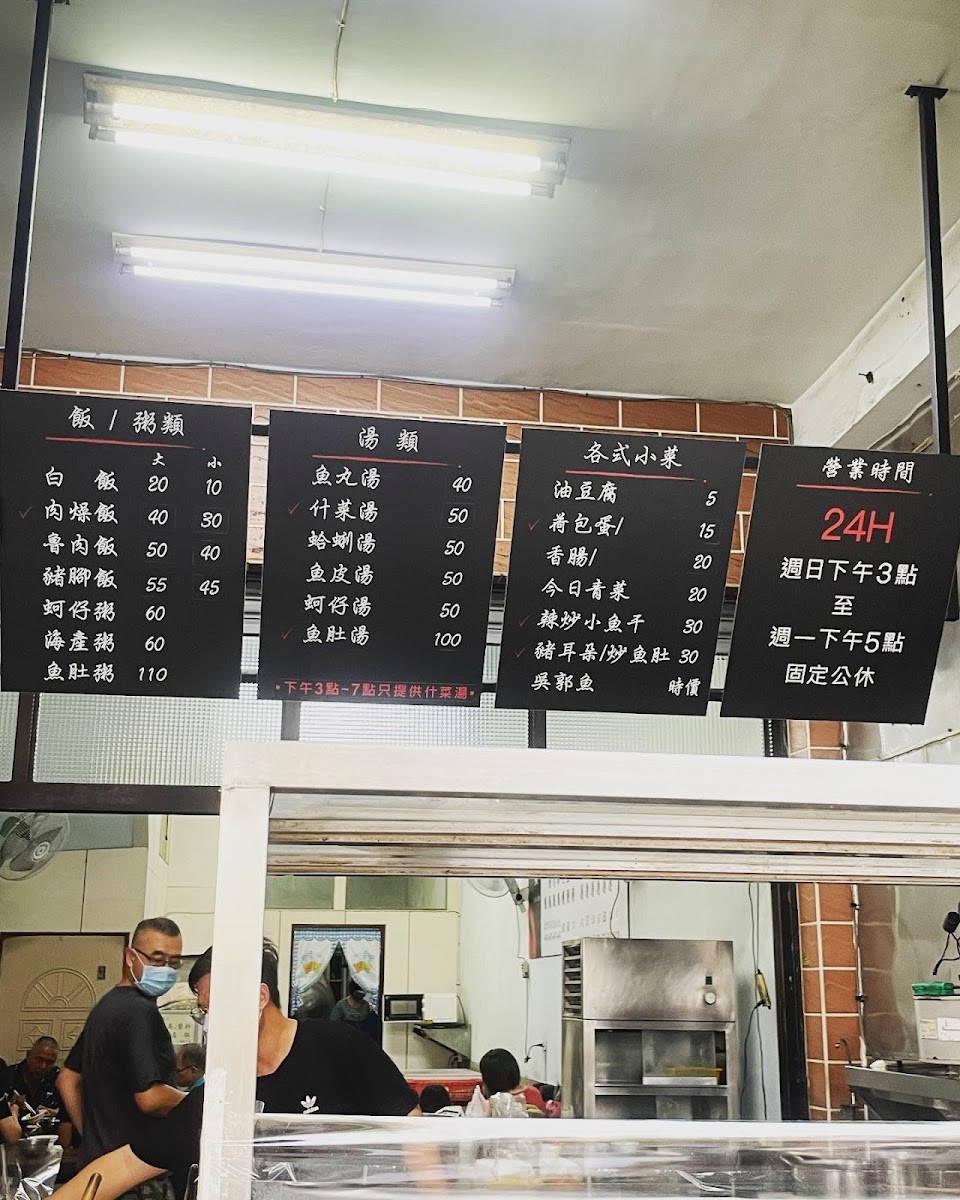 飯 / 粥類
大 小
白飯 20 10
✓ 肉燥飯 40 30
魯肉飯 50 40
豬腳飯 55 45
蚵仔粥 60
海產粥 60
魚肚粥 110
湯類
魚丸湯 40
✓ 什菜湯 50
蛤蜊湯 50
魚皮湯 50
蚵仔湯 50
✓ 魚肚湯 100
•下午3點~7點只提供什菜湯•
各式小菜
油豆腐 5
✓ 荷包蛋/ 15
香腸/ 20
今日青菜 20
✓ 辣炒小魚干 30
✓ 豬耳朵/炒魚肚 30
吳郭魚 時價
營業時間
24H
週日下午3點
至
週一下午5點
固定公休